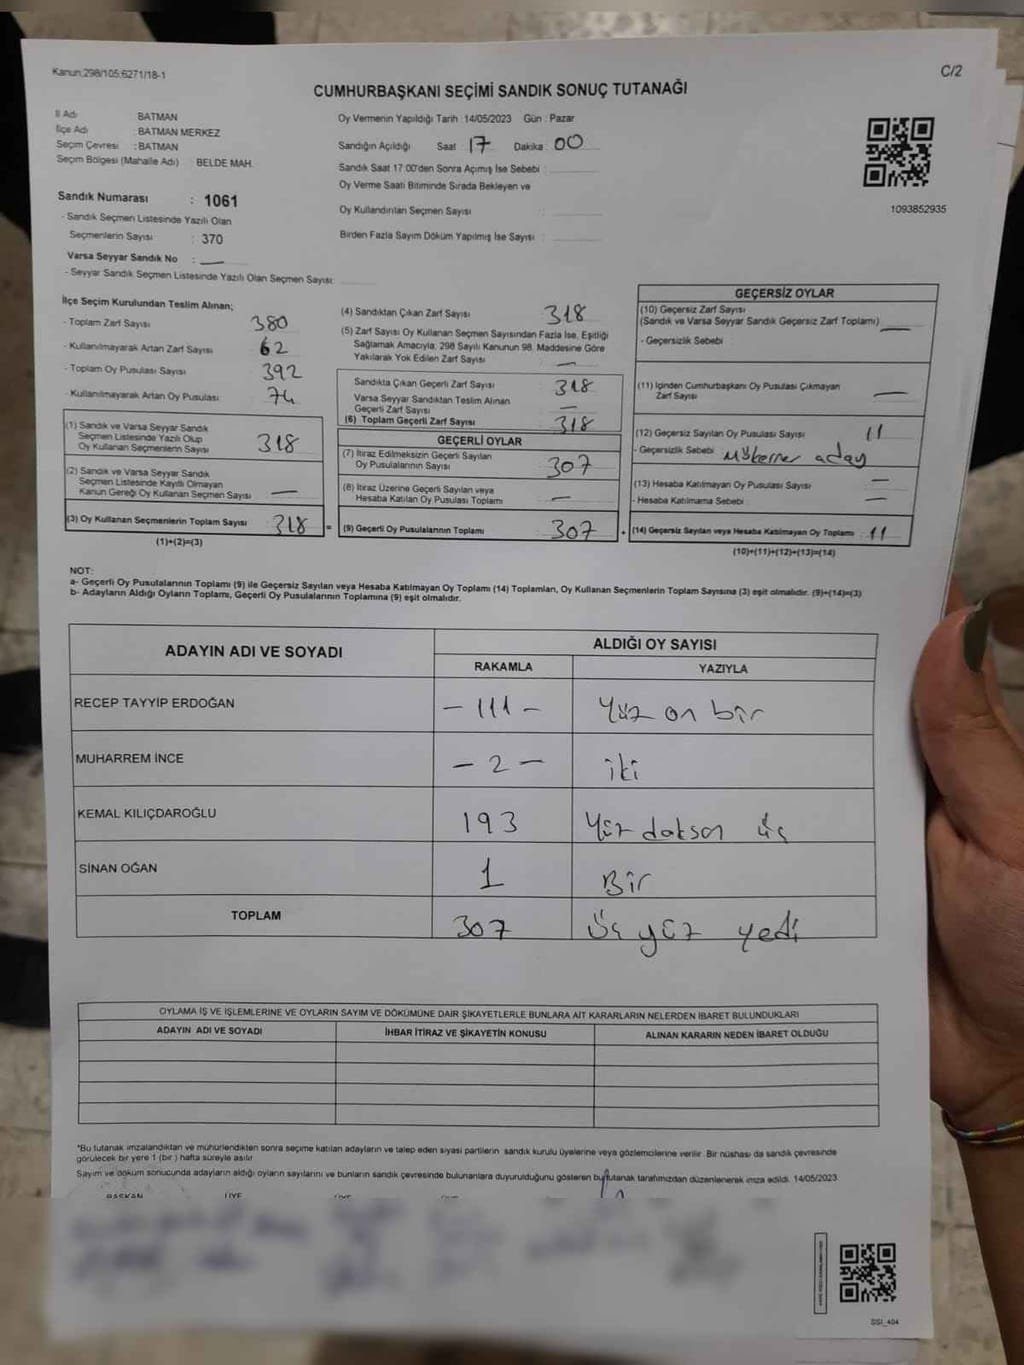 Kanun:298/105;6271/18-1
C/2
CUMHURBAŞKANI SEÇİMİ SANDIK SONUÇ TUTANAĞI
İl Adı BATMAN
İlçe Adı : BATMAN MERKEZ
Seçim Çevresi : BATMAN
Seçim Bölgesi (Mahalle Adı) : BELDE MAH.
Sandık Numarası : 1061
- Sandık Seçmen Listesinde Yazılı Olan
Seçmenlerin Sayısı : 370
Varsa Seyyar Sandık No : —
- Seyyar Sandık Seçmen Listesinde Yazılı Olan Seçmen Sayısı:
Oy Vermenin Yapıldığı Tarih :14/05/2023 Gün : Pazar
Sandığın Açıldığı Saat 17 Dakika : 00
Sandık Saat 17:00'den Sonra Açımış İse Sebebi :
Oy Verme Saati Bitiminde Sırada Bekleyen ve
Oy Kullandırılan Seçmen Sayısı :
Birden Fazla Sayım Döküm Yapılmış İse Sayısı :
1093852935
İlçe Seçim Kurulundan Teslim Alınan;
- Toplam Zarf Sayısı 380
- Kullanılmayarak Artan Zarf Sayısı 62
- Toplam Oy Pusulası Sayısı 392
- Kullanılmayarak Artan Oy Pusulası 74
(1) Sandık ve Varsa Seyyar Sandık
Seçmen Listesinde Yazılı Olup
Oy Kullanan Seçmenlerin Sayısı 318
(2) Sandık ve Varsa Seyyar Sandık
Seçmen Listesinde Kayıtlı Olmayan
Kanun Gereği Oy Kullanan Seçmen Sayısı —
(3) Oy Kullanan Seçmenlerin Toplam Sayısı 318 =
(1)+(2)=(3)
(4) Sandıktan Çıkan Zarf Sayısı 318
(5) Zarf Sayısı Oy Kullanan Seçmen Sayısından Fazla İse, Eşitliği
Sağlamak Amacıyla; 298 Sayılı Kanunun 98. Maddesine Göre
Yakılarak Yok Edilen Zarf Sayısı —
Sandıkta Çıkan Geçerli Zarf Sayısı 318
Varsa Seyyar Sandıktan Teslim Alınan
Geçerli Zarf Sayısı —
(6) Toplam Geçerli Zarf Sayısı 318
GEÇERLİ OYLAR
(7) İtiraz Edilmeksizin Geçerli Sayılan
Oy Pusulalarının Sayısı 307
(8) İtiraz Üzerine Geçerli Sayılan veya
Hesaba Katılan Oy Pusulası Toplamı —
(9) Geçerli Oy Pusulalarının Toplamı 307 +
GEÇERSİZ OYLAR
(10) Geçersiz Zarf Sayısı
(Sandık ve Varsa Seyyar Sandık Geçersiz Zarf Toplamı) —
- Geçersizlik Sebebi
(11) İçinden Cumhurbaşkanı Oy Pusulası Çıkmayan
Zarf Sayısı —
(12) Geçersiz Sayılan Oy Pusulası Sayısı 11
- Geçersizlik Sebebi Mükerrer aday
(13) Hesaba Katılmayan Oy Pusulası Sayısı —
- Hesaba Katılmama Sebebi —
(14) Geçersiz Sayılan veya Hesaba Katılmayan Oy Toplamı : 11
(10)+(11)+(12)+(13)=(14)
NOT:
a- Geçerli Oy Pusulalarının Toplamı (9) ile Geçersiz Sayılan veya Hesaba Katılmayan Oy Toplamı (14) Toplamları, Oy Kullanan Seçmenlerin Toplam Sayısına (3) eşit olmalıdır. (9)+(14)=(3)
b- Adayların Aldığı Oyların Toplamı, Geçerli Oy Pusulalarının Toplamına (9) eşit olmalıdır.
ADAYIN ADI VE SOYADI
ALDIĞI OY SAYISI
RAKAMLA YAZIYLA
RECEP TAYYİP ERDOĞAN - 111 - Yüz on bir
MUHARREM İNCE - 2 - iki
KEMAL KILIÇDAROĞLU 193 Yüz doksan üç
SİNAN OĞAN 1 Bir
TOPLAM 307 Üç yüz yedi
OYLAMA İŞ VE İŞLEMLERİNE VE OYLARIN SAYIM VE DÖKÜMÜNE DAİR ŞİKAYETLERLE BUNLARA AİT KARARLARIN NELERDEN İBARET BULUNDUKLARI
ADAYIN ADI VE SOYADI İHBAR İTİRAZ VE ŞİKAYETİN KONUSU ALINAN KARARIN NEDEN İBARET OLDUĞU
*Bu tutanak imzalandıktan ve mühürlendikten sonra seçime katılan adayların ve talep eden siyasi partilerin sandık kurulu üyelerine veya gözlemcilerine verilir. Bir nüshası da sandık çevresinde
görülecek bir yere 1 (bir ) hafta süreyle asılır.
Sayım ve döküm sonucunda adayların aldığı oyların sayılarını ve bunların sandık çevresinde bulunanlara duyurulduğunu gösteren bu tutanak tarafımızdan düzenlenerek imza edildi. 14/05/2023
BAŞKAN ÜYE ÜYE ÜYE
SSI_404